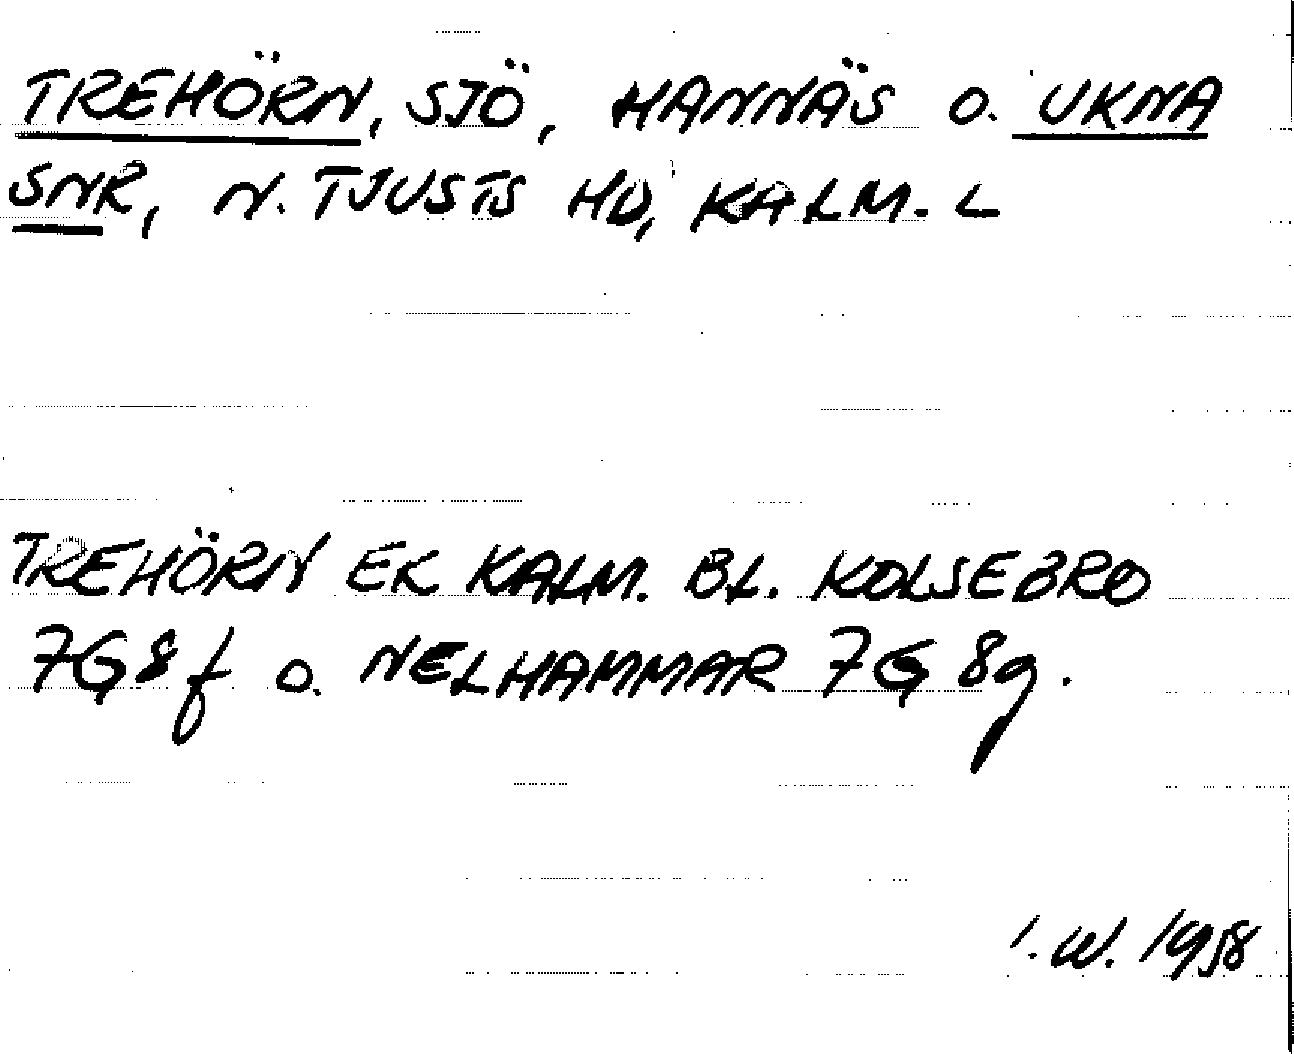 TREHÖRN, SJÖ, HANNÄS O. UKNA
SNR, N. TJUSTS HD, KALM. L
TREHÖRN EK KALM. BL. KOLSEBRO
7G8f O. NELHAMMAR 7G 8g.
I.W. 1958